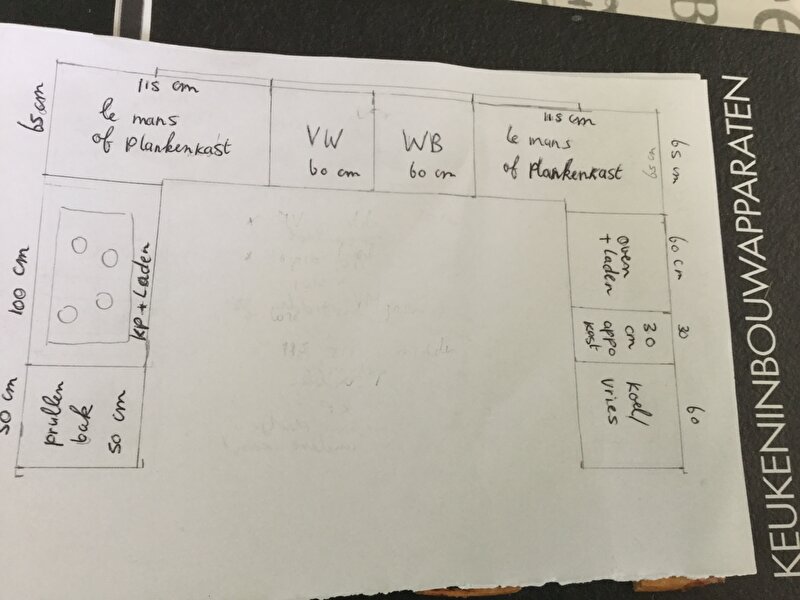 115 cm
le mans
of plankenkast
65 cm
VW
60 cm
WB
60 cm
115 cm
le mans
of plankenkast
65 cm
65 cm
100 cm
KP + Laden
50 cm
prullen
bak
50 cm
oven
+ Laden
60 cm
30
cm
appo
kast
30
koel/
vries
60
KEUKENINBOUWAPPARATEN